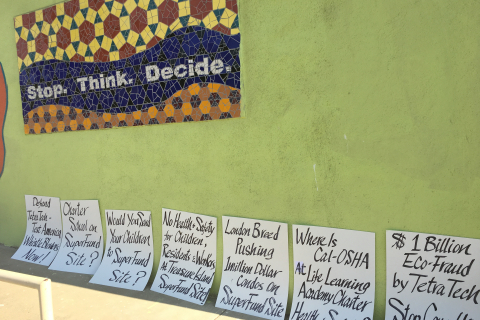 Stop. Think. Decide.
Defend
TetraTech -
Test America
Whistle Blowers
Now!
Charter
School on
SuperFund
Site?
Would You Send
Your Children
to SuperFund
Site?
No Health & Safety
for Children,
Residents & Workers
At Treasure Island
SuperFund Site!
London Breed
Pushing
1million Dollar
Condos on
SuperFund Site
Where Is
Cal-OSHA
At Life Learning
Academy Charter
Health &
$1 Billion
Eco-Fraud
by TetraTech
Stop